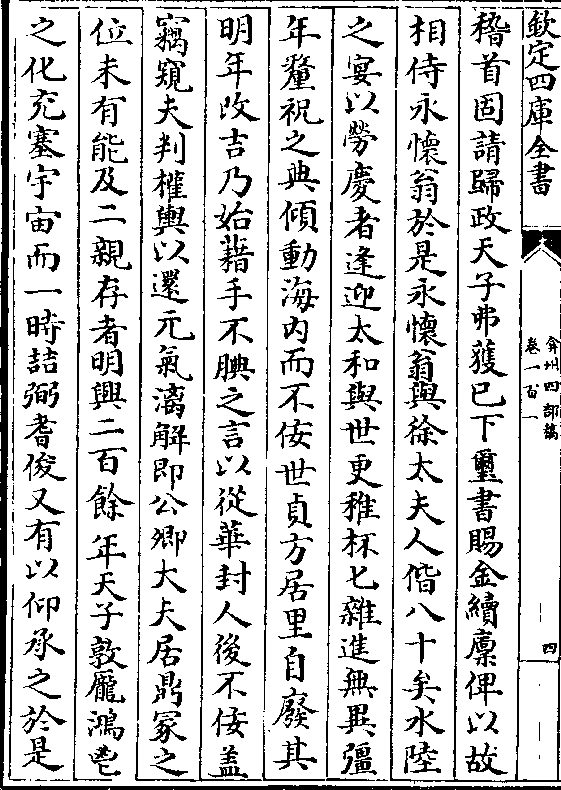 欽定四庫全書
弇州四部稿
卷一百一
四
稽首固請歸政天子弗獲已下璽書賜金續廩俾以故
相侍永懷翁於是永懷翁與徐太夫人偕八十矣水陸
之宴以勞慶者逢迎太和與世更稚杯匕雜進無異彊
年釐祝之典傾動海内而不佞世貞方居里自廢其
明年改吉乃始藉手不腆之言以從華封人後不佞盖
竊窺夫判權輿以還元氣漓解即公卿大夫居鼎冢之
位未有能及二親存者明興二百餘年天子敦龐鴻鬯
之化充塞宇宙而一時喆弼耆俊又有以仰承之於是